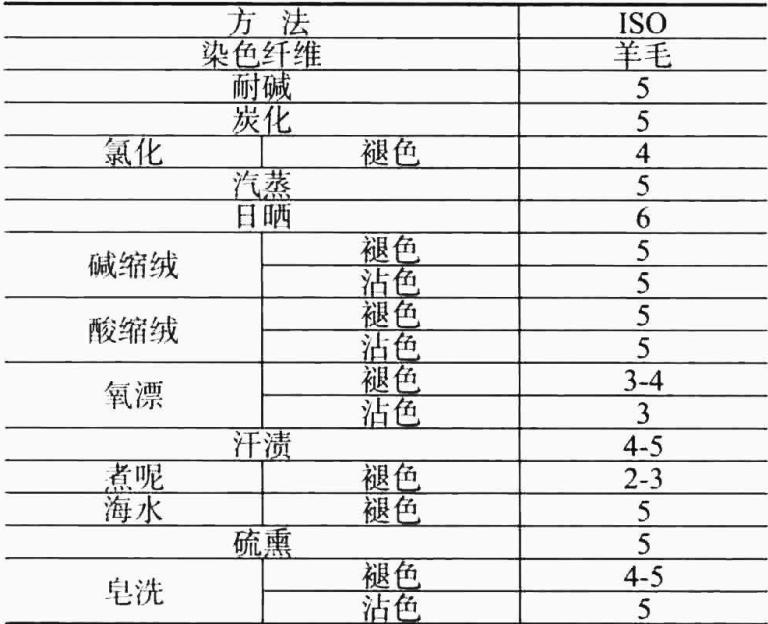 方 法 ISO
染色纤维 羊毛
耐碱 5
炭化 5
氯化 褪色 4
汽蒸 5
日晒 6
碱缩绒 褪色 5
沾色 5
酸缩绒 褪色 5
沾色 5
氧漂 褪色 3-4
沾色 3
汗渍 4-5
煮呢 褪色 2-3
海水 褪色 5
硫熏 5
皂洗 褪色 4-5
沾色 5